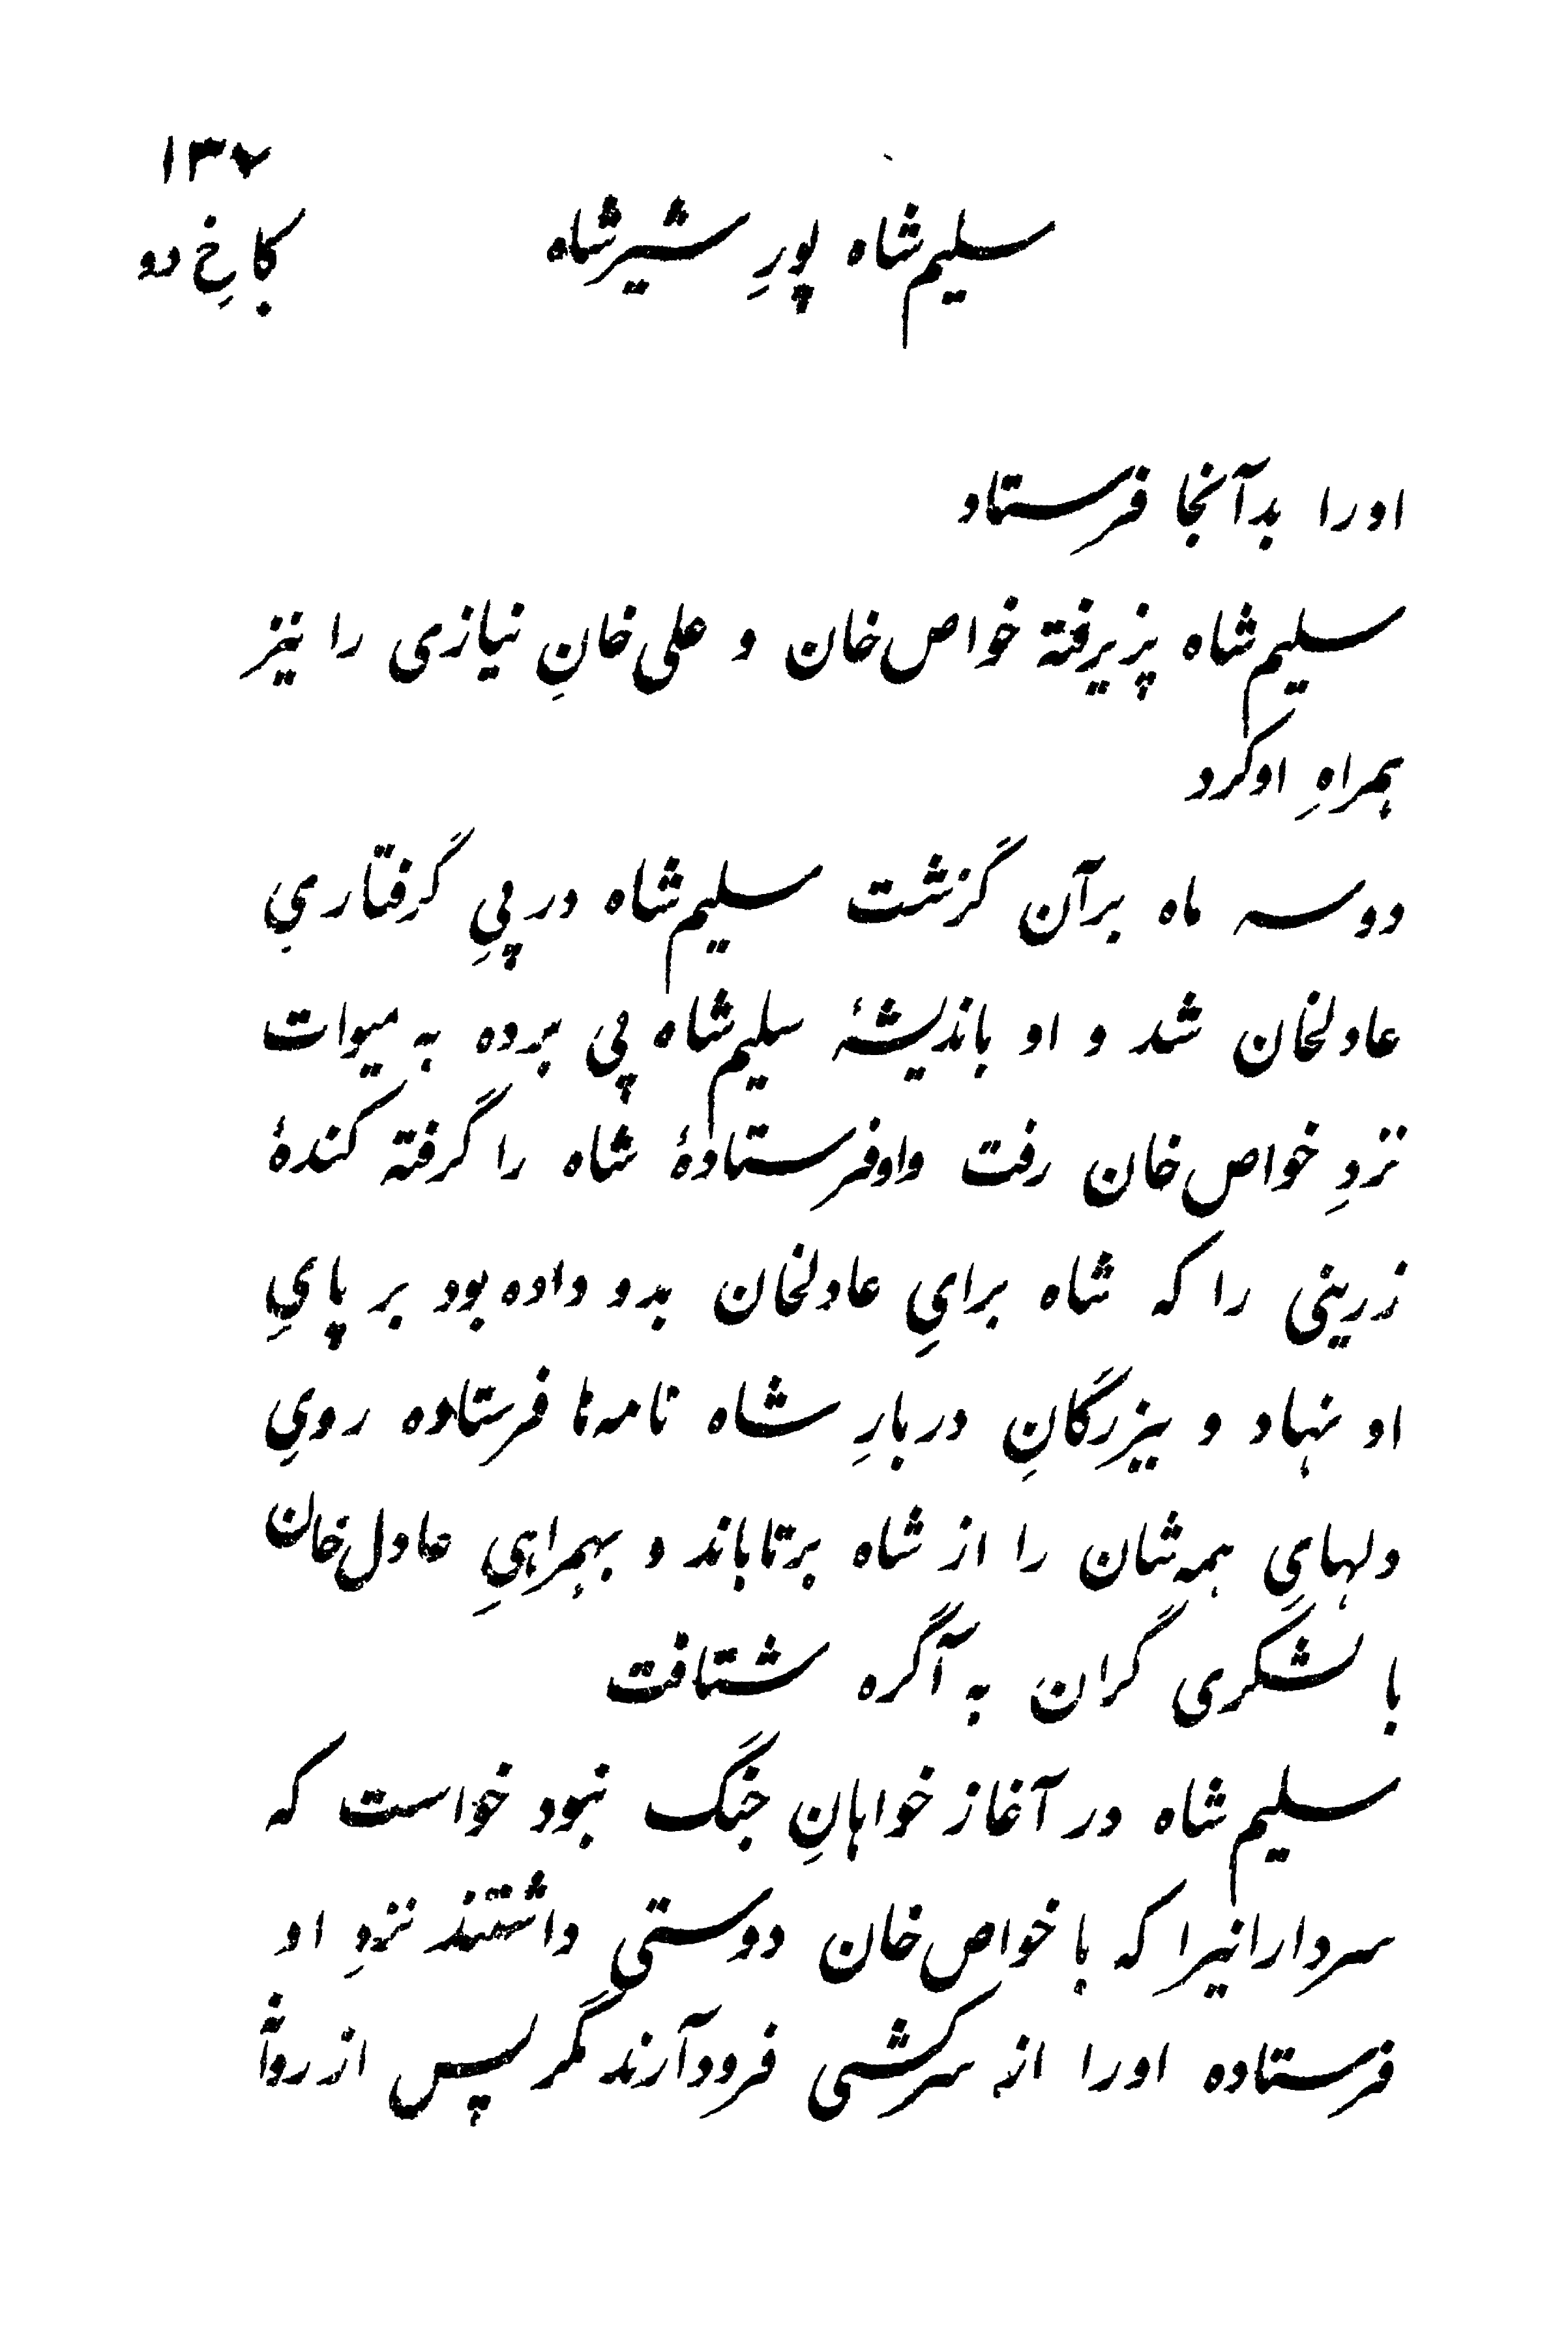 ۱۳۷
سلیم‌شاه پورِ شیرشاه
کاخِ دو
اورا بدآنجا فرستاد
سلیم‌شاه پزیرفته خواص‌خان و علی‌خانِ نیازی را نیز
همراهِ او کرد
دوسه ماه برآن گزشت سلیم‌شاه در پیِ گرفتاریِ
عادلخان شد و او باندیشهٔ سلیم‌شاه پی برده به میوات
نزدِ خواص‌خان رفت واوفرستادهٔ شاه را گرفته کندهٔ
زرینی را که شاه برایِ عادلخان بدو داده بود بر پایِ
او نهاد و ببزرگانِ دربارِ شاه نامه‌ها فرستاده رویِ
دلهایِ همه‌شان را از شاه برتاباند و بهمراهیِ عادل‌خان
با لشگری گران به آگره شتافت
سلیم‌شاه در آغاز خواهانِ جنگ نبود خواست که
سردارانیرا که با خواص‌خان دوستی داشتند نزدِ او
فرستاده اورا از سرکشی فرودآرند مگر پس از روانهٔ